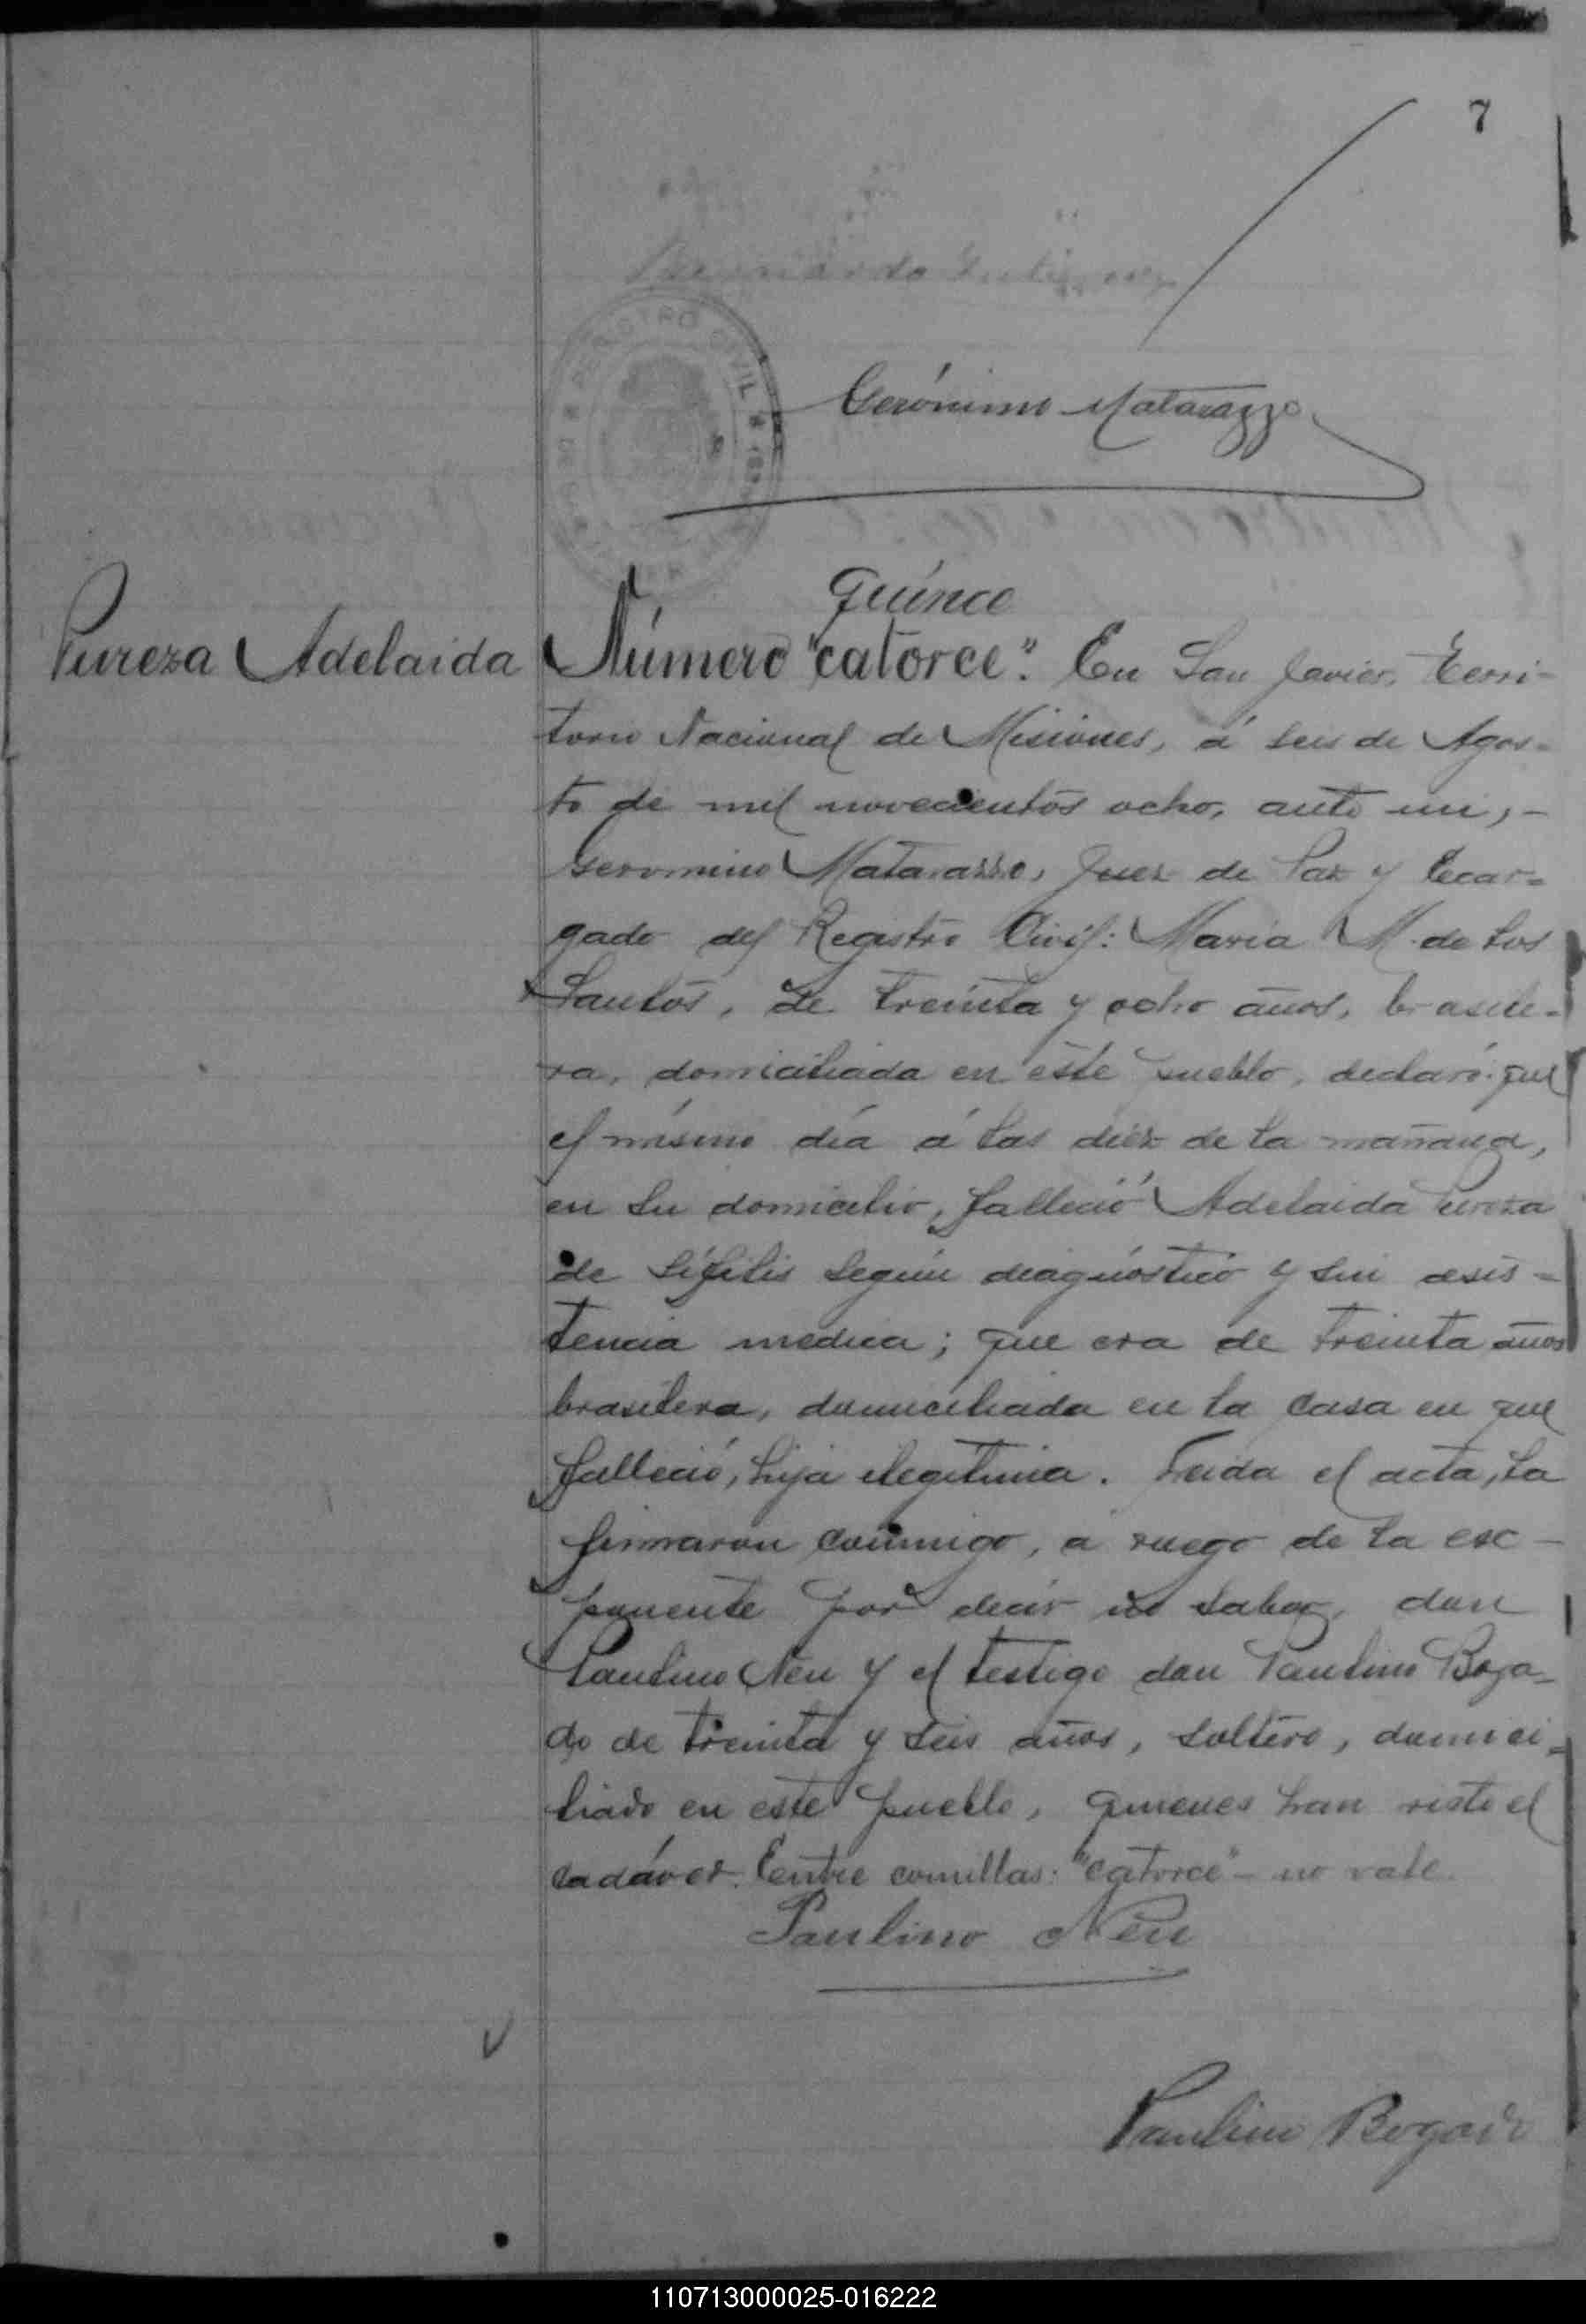 7
REGISTRO CIVIL
Gerónimo Matarazzo
quince
Pureza Adelaida
Número "catorce". En San Javier, Terri-
torio Nacional de Misiones, á seis de Agos-
to de mil novecientos ocho, ante mi, -
Geronimo Matarazzo, Juez de Paz y Encar-
gado del Registro Civil: Maria M. de los
Santos, de treinta y ocho años, brasile-
ra, domiciliada en este pueblo, declaró: que
el mismo día á las diez de la mañana,
en su domicilio, falleció Adelaida Pureza
de sífilis según diagnóstico y sin asis-
tencia medica; que era de treinta años
brasilera, domiciliada en la casa en que
falleció, hija ilegitima. Leida el acta, la
firmaron conmigo, á ruego de la esc-
ponente por decir no saber, don
Paulino Neu y el testigo don Paulino Boga-
do de treinta y seis años, soltero, domici-
liado en este pueblo, quienes han visto el
cadáver. Entre comillas: "catorce" - no vale.
Paulino Neu
Paulino Bogado
110713000025-016222